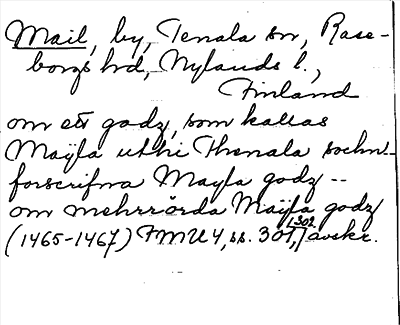 Mail, by, Tenala sn, Rase-
borgs hd, Nylands l.,
Finland
om ett godz, som kallas
Maÿla uthi Thenala sochn-
forscrifna Mayla godz --
om mehrrörda Maÿla godz
(1465-1467) FMU 4, ss. 301, 302 avskr.